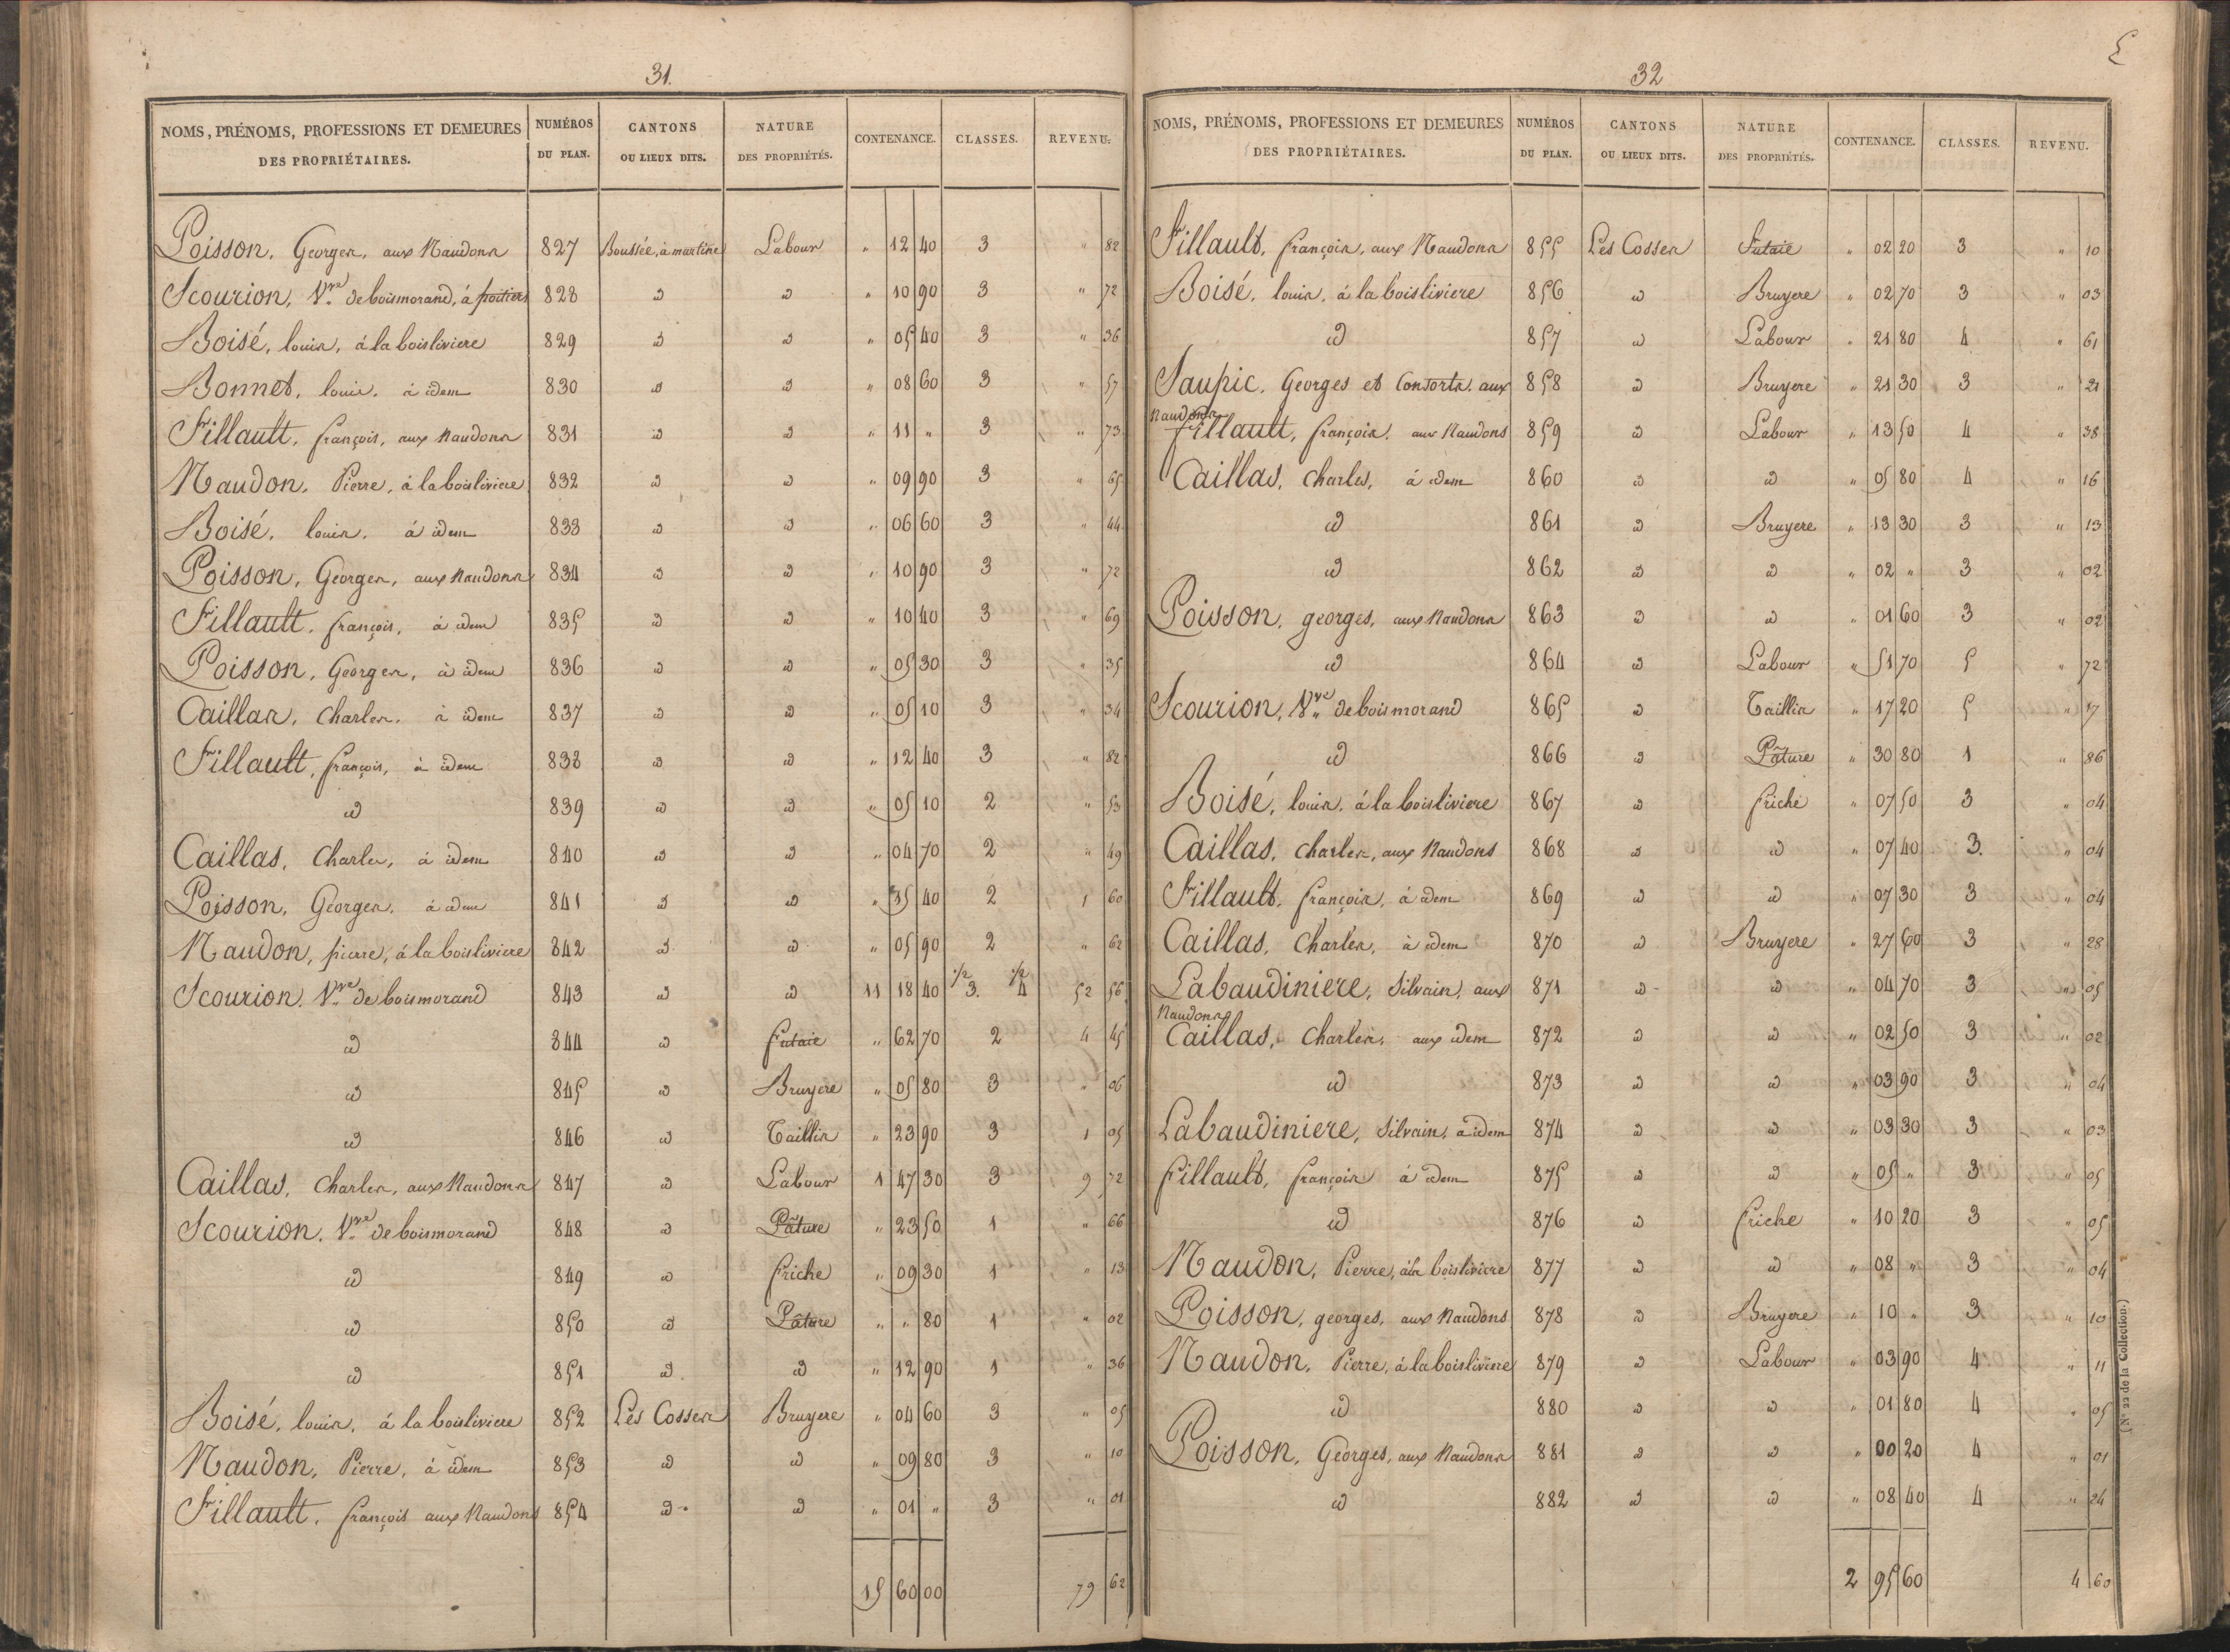 31.
NOMS, PRÉNOMS, PROFESSIONS ET DEMEURES DES PROPRIÉTAIRES. | NUMÉROS DU PLAN. | CANTONS OU LIEUX DITS. | NATURE DES PROPRIÉTÉS. | CONTENANCE. | CLASSES. | REVENU.
Poisson, Georges, aux Naudons 827 Boussée, à martine Labour " 12 40 3 " 82
Scourion, Vve de boismorand, à poitiers 828 id id " 10 90 3 " 72
Boisé, louis, à la boisliviere 829 id id " 05 40 3 " 36
Bonnet, louis, à idem 830 id id " 08 60 3 " 57
Fillault, françois, aux Naudons 831 id id " 11 " 3 " 73
Naudon, Pierre, à la boisliviere 832 id id " 09 90 3 " 65
Boisé, louis, à idem 833 id id " 06 60 3 " 44
Poisson, Georges, aux Naudons 834 id id " 10 90 3 " 72
Fillault, françois, à idem 835 id id " 10 40 3 " 69
Poisson, Georges, à idem 836 id id " 05 30 3 " 35
Caillas, Charles, à idem 837 id id " 05 10 3 " 34
Fillault, françois, à idem 838 id id " 12 40 3 " 82
id 839 id id " 05 10 2 " 53
Caillas, Charles, à idem 840 id id " 04 70 2 " 49
Poisson, Georges, à idem 841 id id " 35 40 2 1 60
Naudon, pierre, à la boisliviere 842 id id " 05 90 2 " 62
Scourion, Vve de boismorand 843 id id 11 18 40 1/2 3. 1/2 4 52 56
id 844 id futaie " 62 70 2 4 45
id 845 id Bruyere " 05 80 3 " 06
id 846 id Taillis " 23 90 3 1 05
Caillas, Charles, aux Naudons 847 id Labour 1 47 30 3 9 72
Scourion, Vve de boismorand 848 id Pâture " 23 50 1 " 66
id 849 id friche " 09 30 1 " 13
id 850 id Pâture " " 80 1 " 02
id 851 id id " 12 90 1 " 36
Boisé, louis, à la boisliviere 852 Les Cosses Bruyere " 04 60 3 " 05
Naudon, Pierre, à idem 853 id id " 09 80 3 " 10
Fillault, françois aux Naudons 854 id id " 01 " 3 " 01
15 60 00 79 62
32
NOMS, PRÉNOMS, PROFESSIONS ET DEMEURES DES PROPRIÉTAIRES. | NUMÉROS DU PLAN. | CANTONS OU LIEUX DITS. | NATURE DES PROPRIÉTÉS. | CONTENANCE. | CLASSES. | REVENU.
Fillault, françois, aux Naudons 855 Les Cosses Futaie " 02 20 3 " 10
Boisé, louis, à la boisliviere 856 id Bruyere " 02 70 3 " 03
id 857 id Labour " 21 80 4 " 61
Saupic, Georges et Consorts, aux Naudons 858 id Bruyere " 21 30 3 " 21
fillault, françois, aux Naudons 859 id Labour " 13 50 4 " 38
Caillas, Charles, à idem 860 id id " 05 80 4 " 16
id 861 id Bruyere " 13 30 3 " 13
id 862 id id " 02 " 3 " 02
Poisson, georges, aux Naudons 863 id id " 01 60 3 " 02
id 864 id Labour " 51 70 5 " 72
Scourion, Vve de boismorand 865 id Taillis " 17 20 5 " 17
id 866 id Pâture " 30 80 1 " 86
Boisé, louis, à la boisliviere 867 id friche " 07 50 3 " 04
Caillas, Charles, aux Naudons 868 id id " 07 40 3. " 04
Fillault, françois, à idem 869 id id " 07 30 3 " 04
Caillas, Charles, à idem 870 id Bruyere " 27 60 3 " 28
Labaudiniere, Silvain, aux Naudons 871 id id " 04 70 3 " 05
Caillas, Charles, aux idem 872 id id " 02 50 3 " 02
id 873 id id " 03 90 3 " 04
Labaudiniere, Silvain, à idem 874 id id " 03 30 3 " 03
fillault, françois à idem 875 id id " 05 " 3 " 05
id 876 id friche " 10 20 3 " 05
Naudon, Pierre, à la boisliviere 877 id id " 08 " 3 " 04
Poisson, georges, aux Naudons 878 id Bruyere " 10 " 3 " 10
Naudon, Pierre, à la boisliviere 879 id Labour " 03 90 4 " 11
id 880 id id " 01 80 4 " 05
Poisson, Georges, aux Naudons 881 id id " 00 20 4 " 01
id 882 id id " 08 40 4 " 24
2 95 60 4 60
(N° 22 de la Collection.)